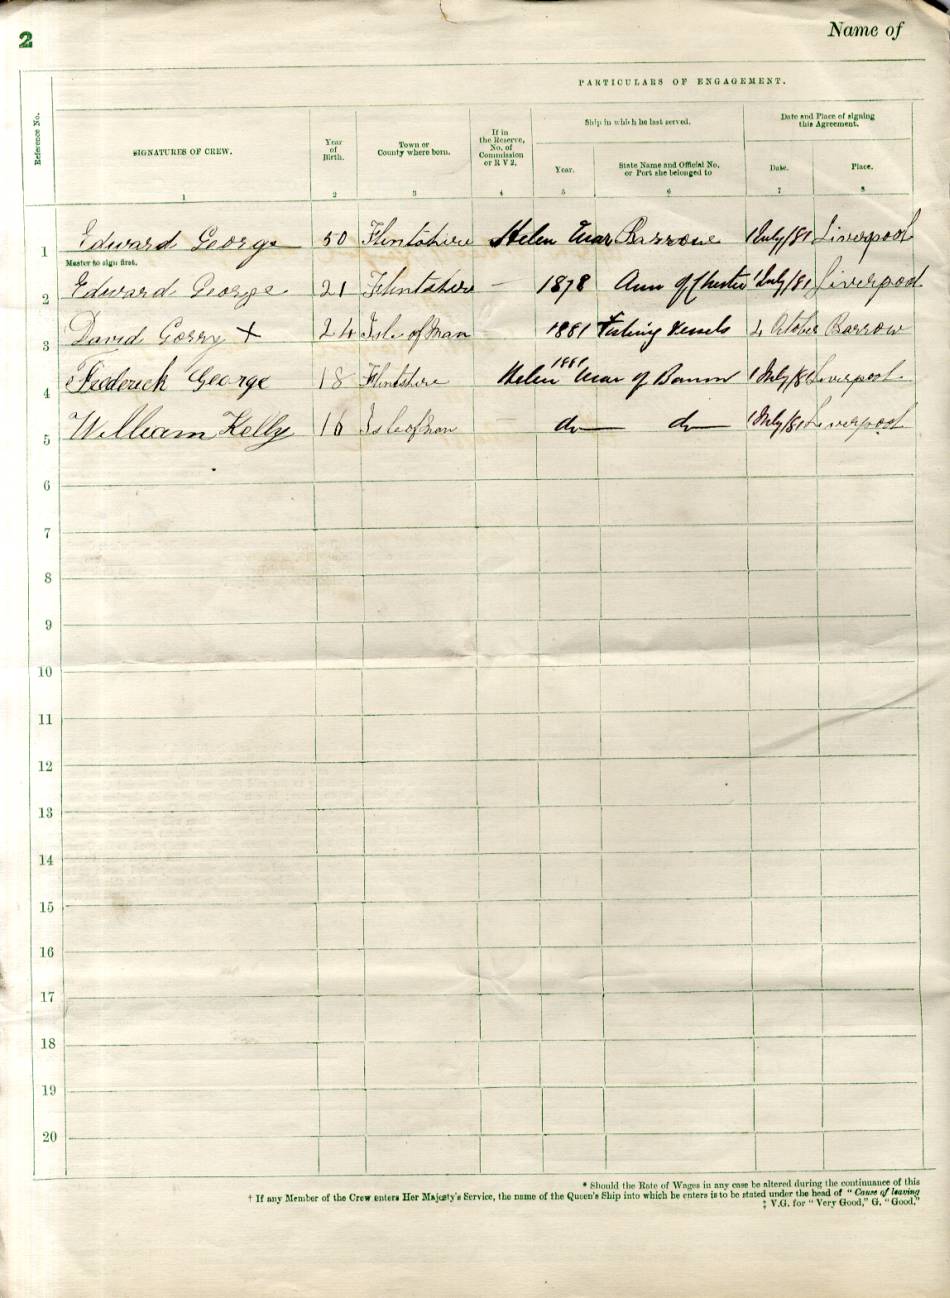 2
Name of
PARTICULARS OF ENGAGEMENT.
Reference No.
SIGNATURES OF CREW.
Year of Birth.
Town or County where born.
If in the Reserve, No. of Commission or R V 2.
Ship in which he last served.
Year.
State Name and Official No. or Port she belonged to
Date and Place of signing this Agreement.
Date.
Place.
1 2 3 4 5 6 7 8
1 Edward George 50 Flintshire Helen Mar Barrow 1 July/81 Liverpool
Master to sign first.
2 Edward George 21 Flintshire — 1878 Ann of Chester 1 July/81 Liverpool
3 David Gorry X 24 Isle of Man 1881 Fishing Vessels 4 October Barrow
4 Frederick George 18 Flintshire 1881 Helen Mar of Barrow 1 July/81 Liverpool
5 William Kelly 16 Isle of Man do do 1 July/81 Liverpool
6
7
8
9
10
11
12
13
14
15
16
17
18
19
20
* Should the Rate of Wages in any case be altered during the continuance of this
† If any Member of the Crew enters Her Majesty's Service, the name of the Queen's Ship into which he enters is to be stated under the head of "Cause of leaving
‡ V.G. for "Very Good," G. "Good,"